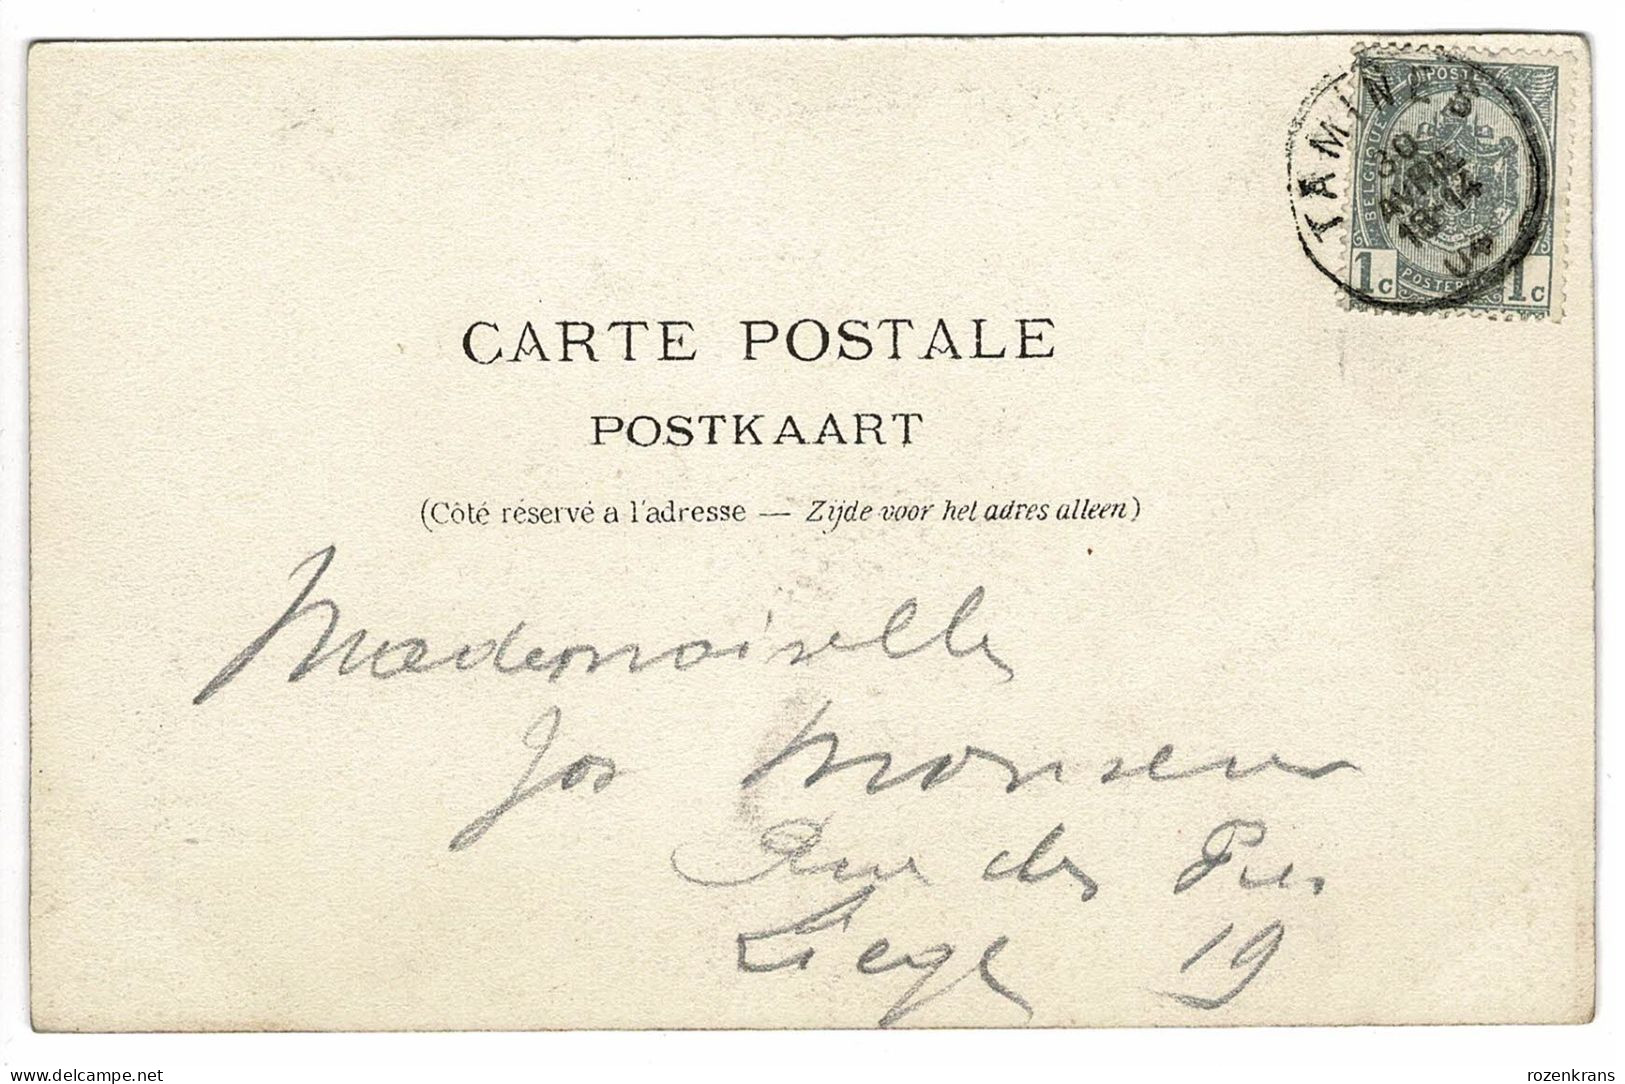 TAMINES
30
AVRIL
18-14
04
POSTE
BELGIQUE
1c 1c
CARTE POSTALE
POSTKAART
(Côté réservé a l'adresse — Zijde voor het adres alleen)
Mademoiselle
Jos Monseur
Rue des
Liege 19
delcampe.net
rozenkrans